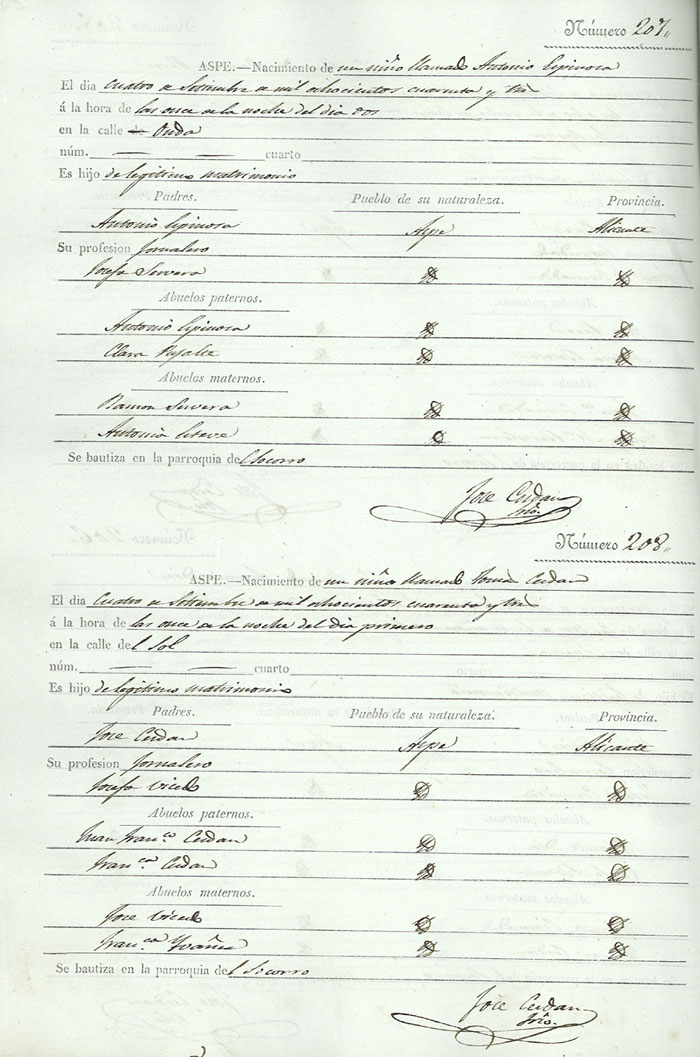 Número 207.
ASPE.—Nacimiento de un niño llamado Antonio Espinosa
El dia cuatro de Setiembre de mil ochocientos cuarenta y tres
á la hora de las once de la noche del dia dos
en la calle de Onda
núm. — — cuarto
Es hijo de legitimo matrimonio
Padres. Pueblo de su naturaleza. Provincia.
Antonio Espinosa Aspe Alicante
Su profesion Jornalero
Josefa Servera
Abuelos paternos.
Antonio Espinosa
Clara
Abuelos maternos.
Ramon Servera
Antonia
Se bautiza en la parroquia del Socorro
Jose Cerdan
Srio.
Número 208.
ASPE.—Nacimiento de un niño llamado Tomás Cerdan
El dia cuatro de Setiembre de mil ochocientos cuarenta y tres
á la hora de las once de la noche del dia primero
en la calle del Sol
núm. — — cuarto
Es hijo de legitimo matrimonio
Padres. Pueblo de su naturaleza. Provincia.
Jose Cerdan Aspe Alicante
Su profesion Jornalero
Josefa Vicedo
Abuelos paternos.
Juan Fran.co Cerdan
Fran.ca Cerdan
Abuelos maternos.
Jose Vicedo
Fran.ca Yvañes
Se bautiza en la parroquia del Socorro
Jose Cerdan
Srio.